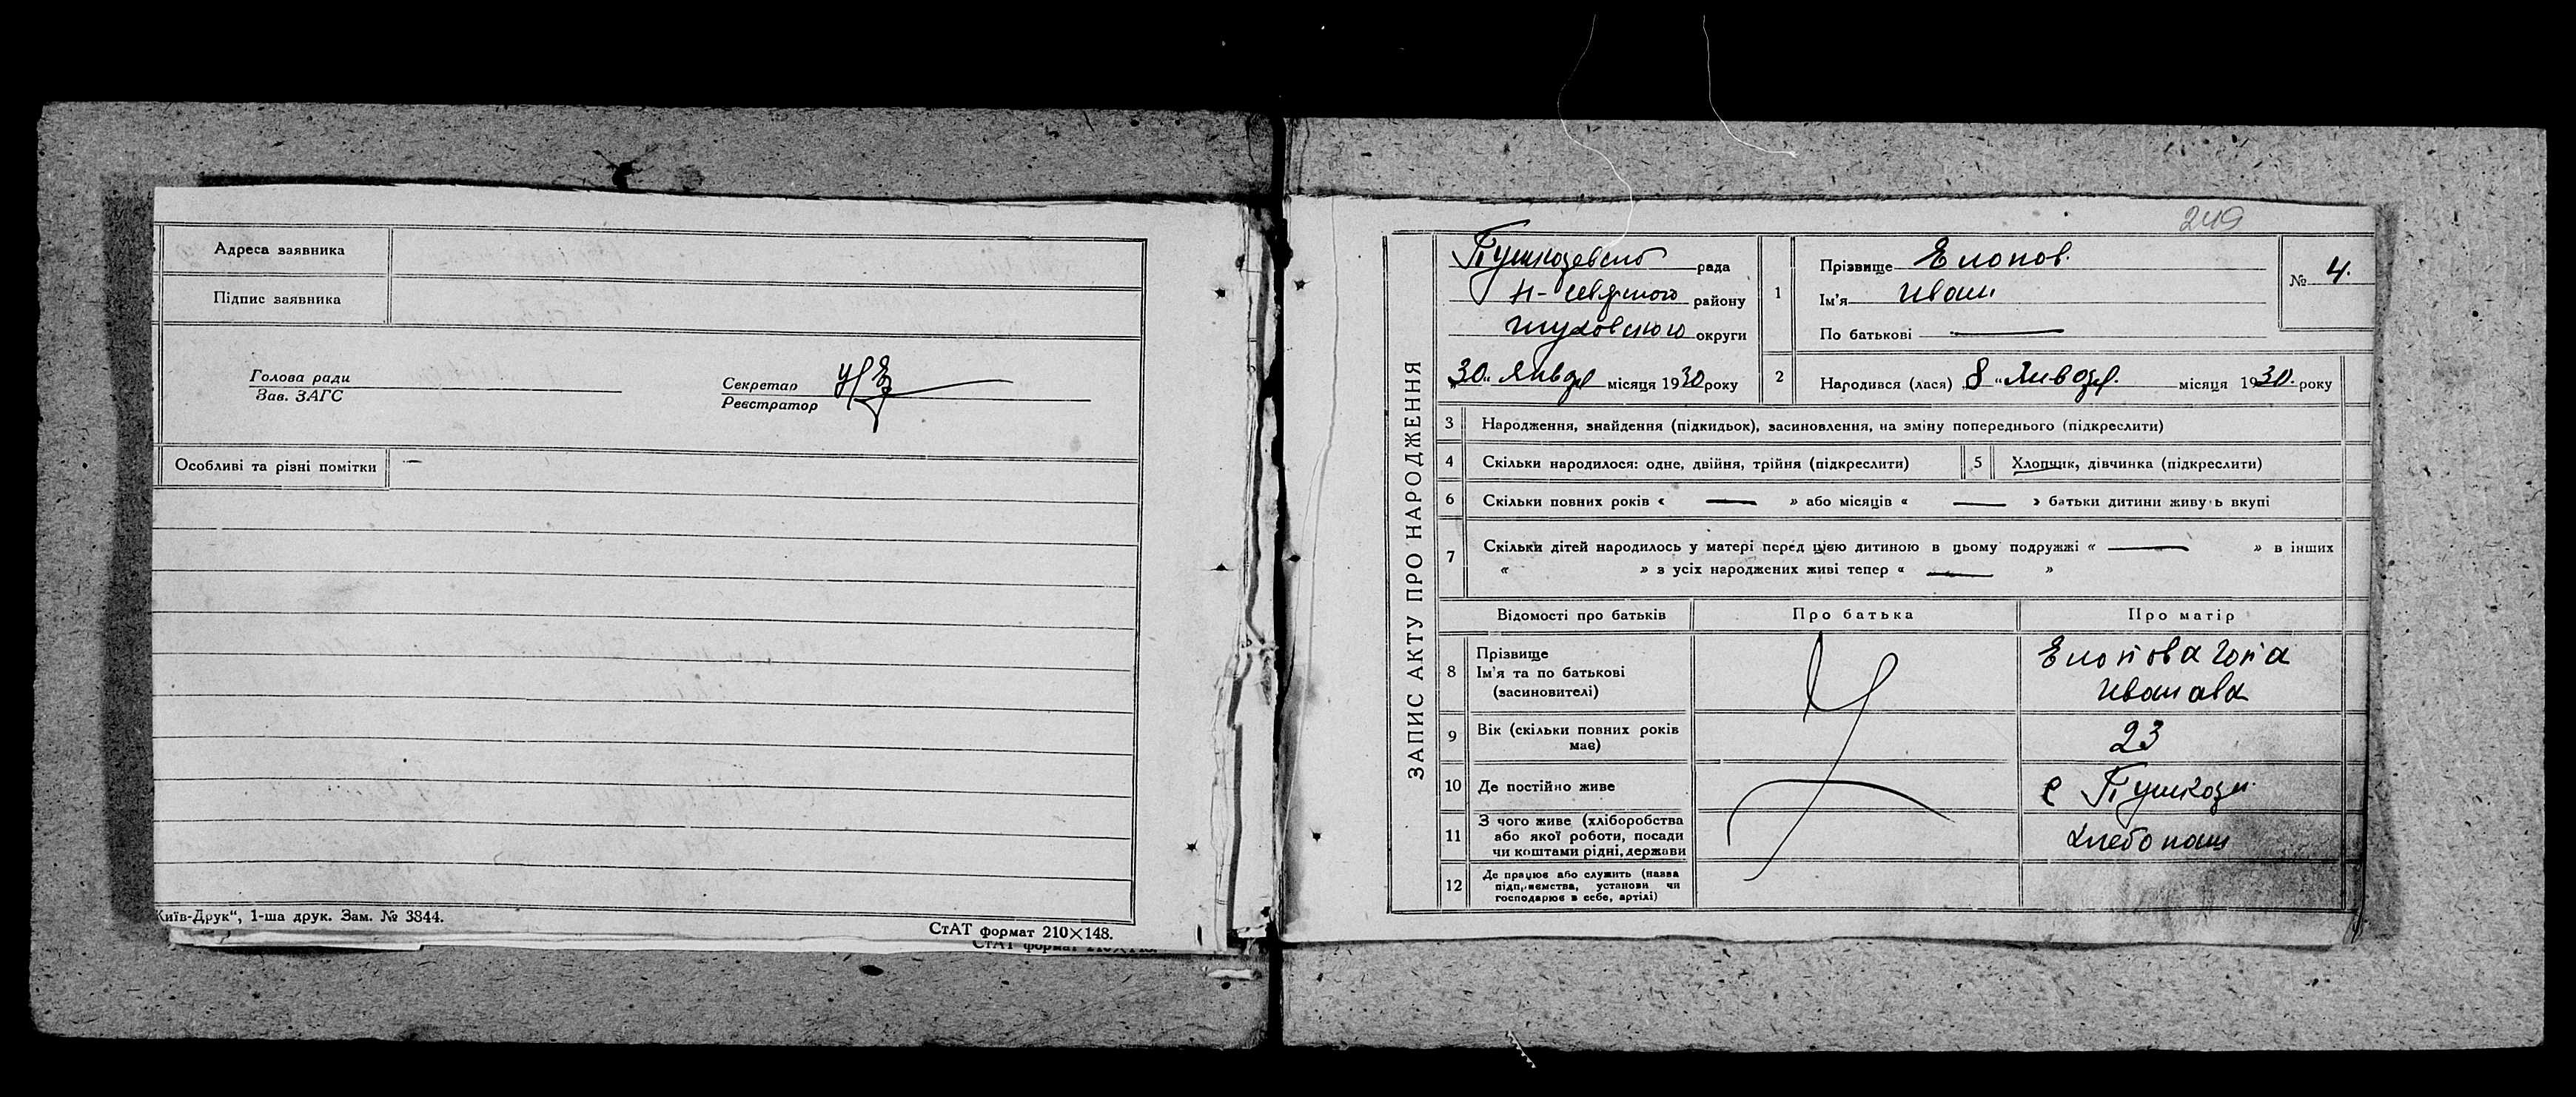 Адреса заявника
Підпис заявника
Голова ради
Зав. ЗАГС
Секретар
Реєстратор
Особливі та різні помітки —
Київ-Друк", 1-ша друк. Зам. № 3844.
СтАТ формат 210×148.
СтАТ формат 210×148.
249
ЗАПИС АКТУ ПРО НАРОДЖЕННЯ
рада
Н- району
округи
„30" Января місяця 1930 року
1
Прізвище Елопов.
Ім'я Иван
По батькові —
№ 4.
2 Народився (лася) „8" Января. місяця 1930. року
3 Народження, знайдення (підкидьок), засиновлення, на зміну попереднього (підкреслити)
4 Скільки народилося: одне, двійня, трійня (підкреслити)
5 Хлопчик, дівчинка (підкреслити)
6 Скільки повних років « — » або місяців « — » батьки дитини живуть вкупі
7 Скільки дітей народилось у матері перед цією дитиною в цьому подружжі « — » в інших
« » з усіх народжених живі тепер « — »
Відомості про батьків Про батька Про матір
8 Прізвище
Ім'я та по батькові
(засиновителі)
Елопова
Иванова
9 Вік (скільки повних років
має)
23
10 Де постійно живе
с
11 З чого живе (хліборобства
або якої роботи, посади
чи коштами рідні, держави
хлебопаш
12 Де працює або служить (назва
підприємства, установи чи
господарює в себе, артілі)